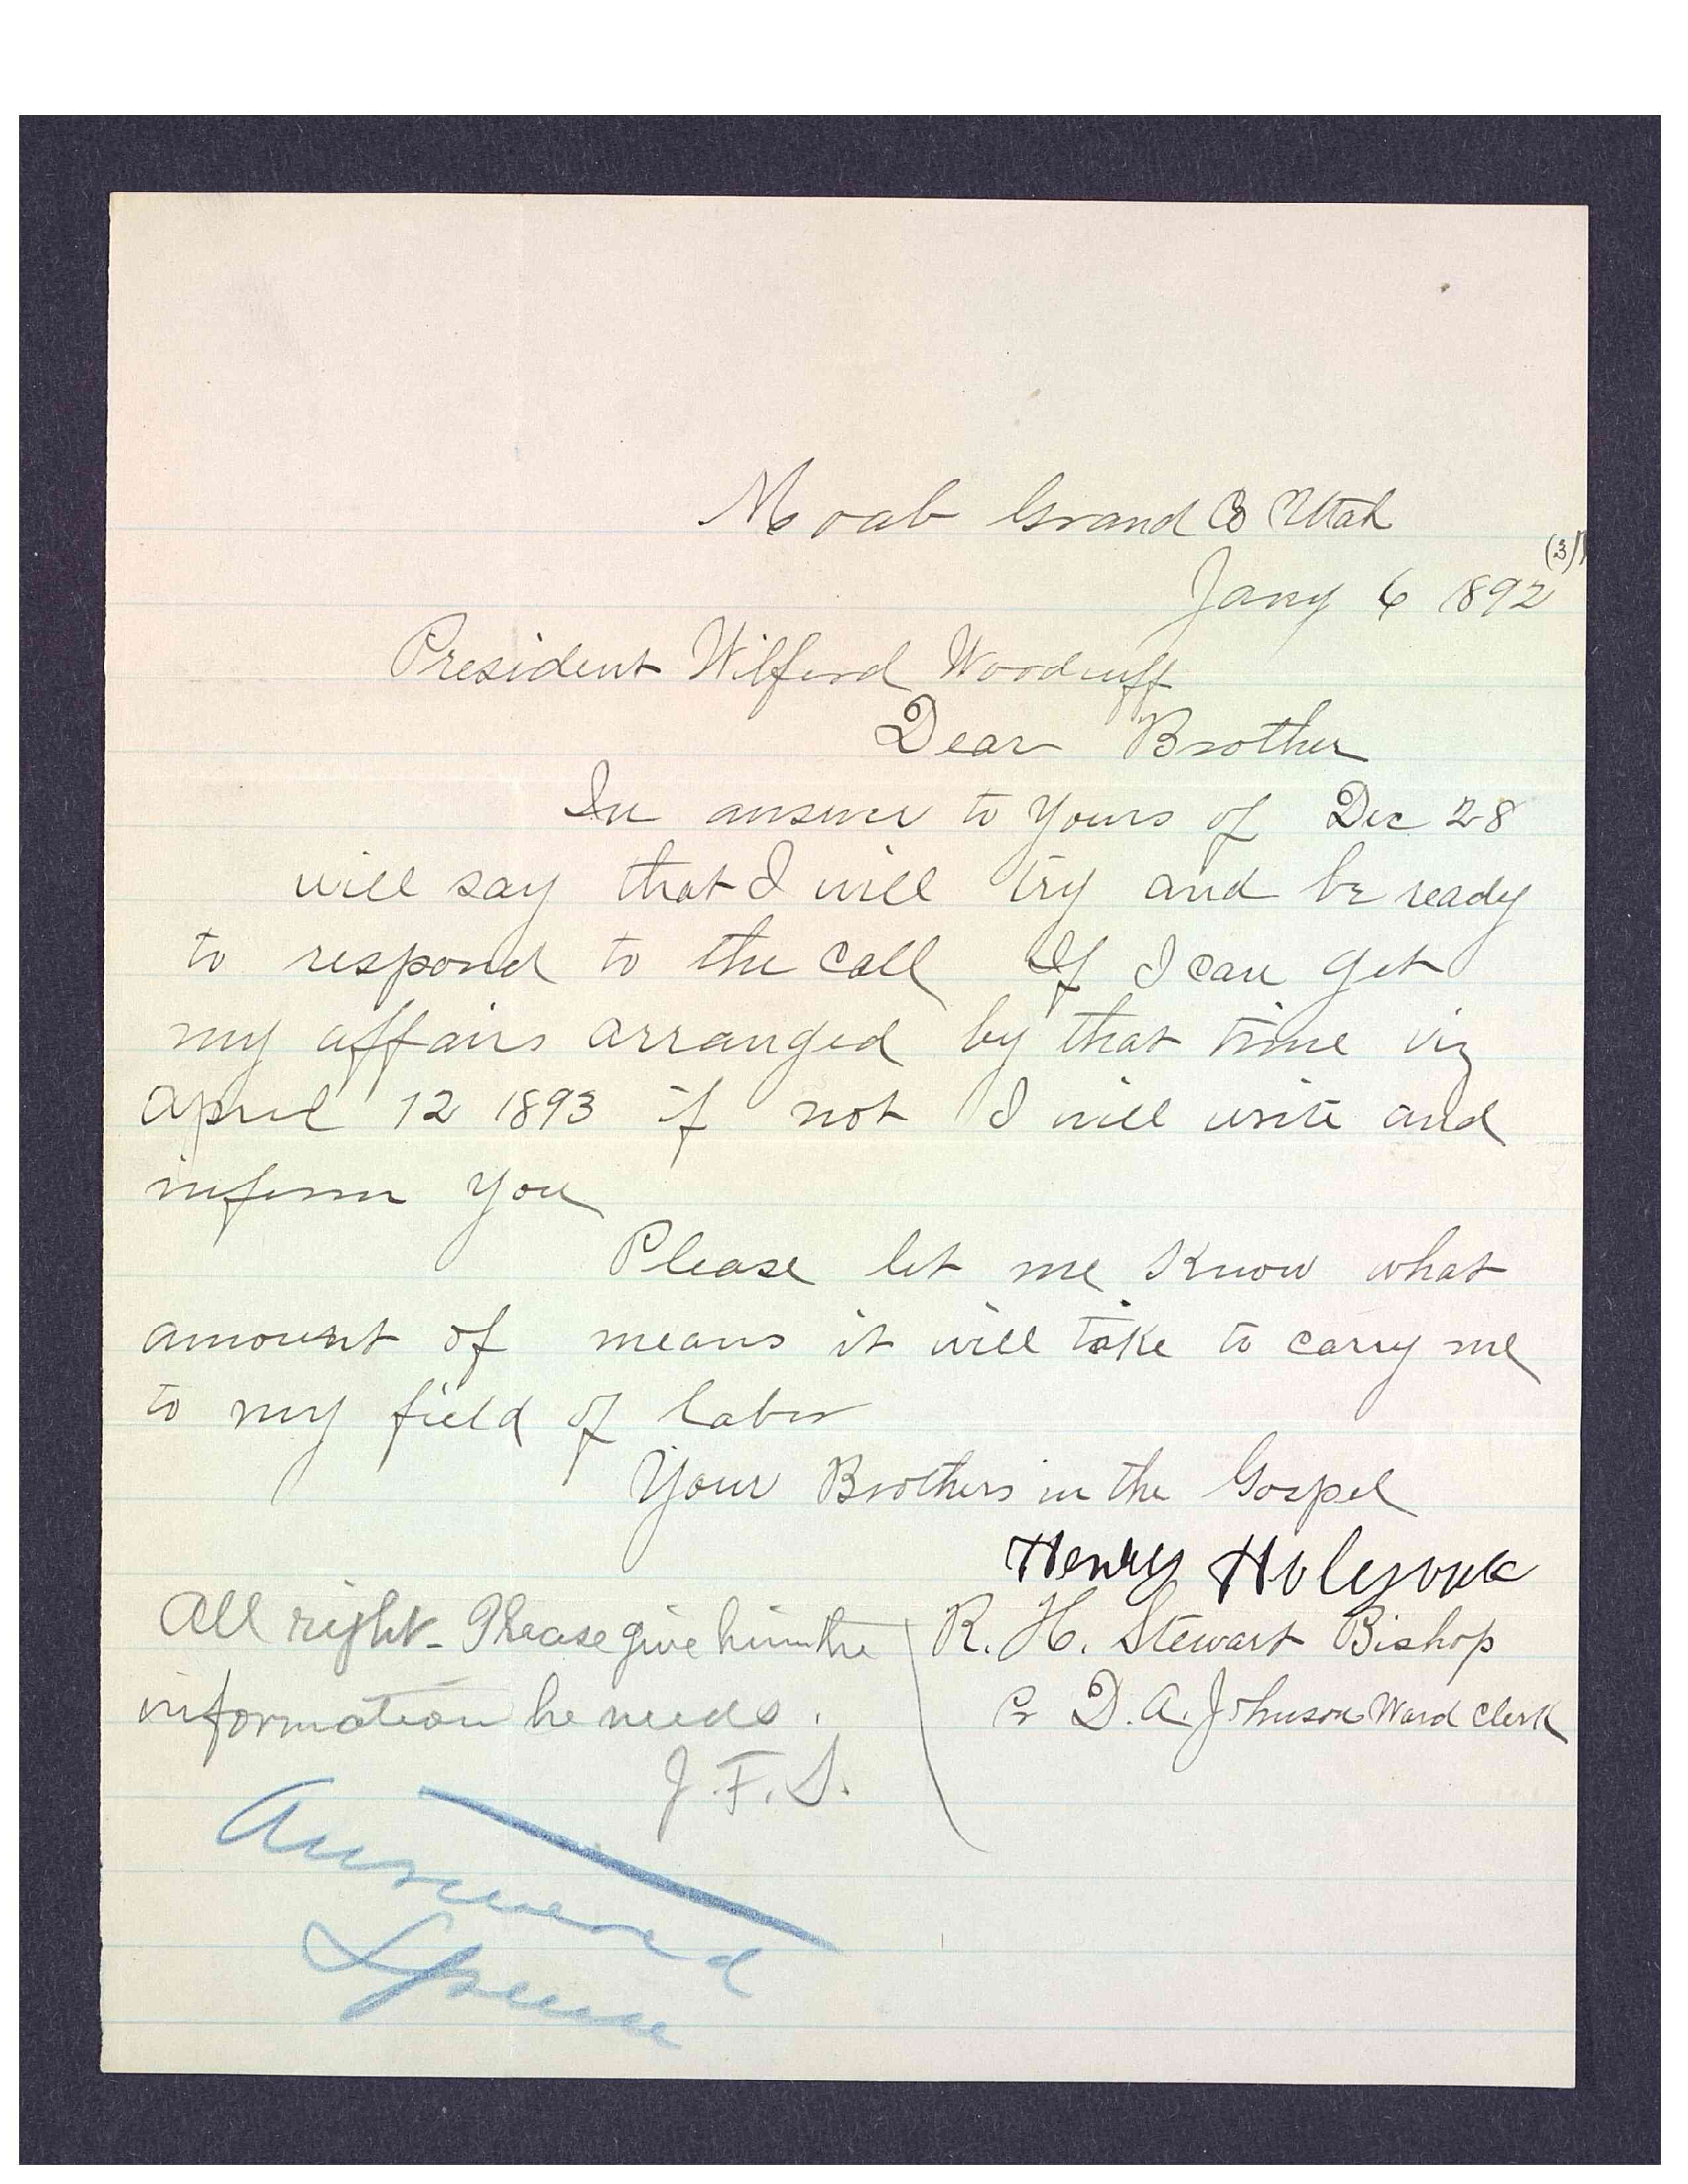 Moab Grand Co Utah
(3)
Jany 6 1892
President Wilford Woodruff
Dear Brother
In answer to yours of Dec 28
will say that I will try and be ready
to respond to the call If I can get
my affairs arranged by that time viz
April 12 1893 if not I will write and
inform you
Please let me know what
amount of means it will take to carry me
to my field of labor
Your Brothers in the Gospel
Henry Holyoak
R. H. Stewart Bishop
D. A. Johnson Ward Clerk
All right. Please give him the
information he needs.
J. F. S.
Answered
Spence